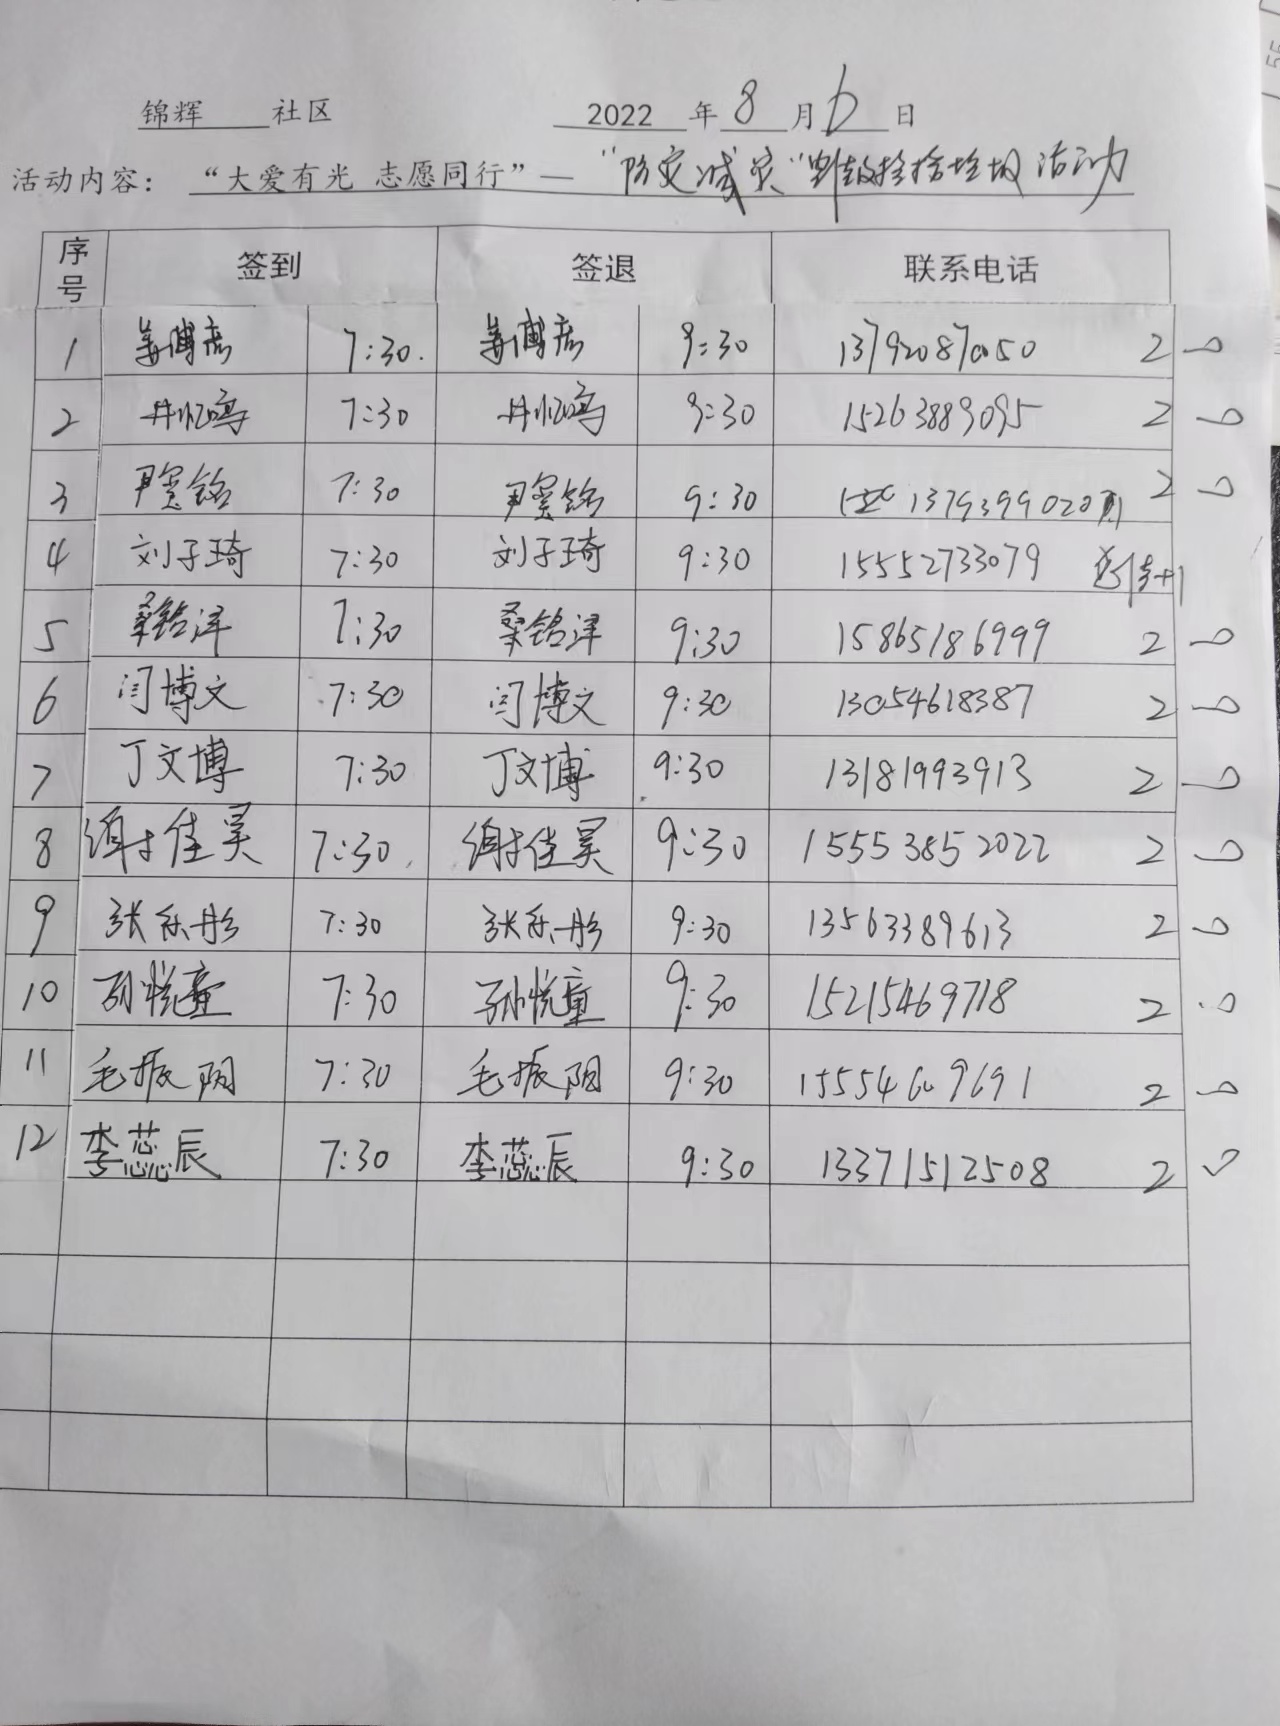 锦辉 社区 2022 年 8 月 6 日
活动内容： “大爱有光 志愿同行”— “防灾减灾” 捡拾垃圾 活动
序号 签到 签退 联系电话
1 7:30. 9:30 13792087050 2
2 井忆鸣 7:30 井忆鸣 9:30 15263889095 2
3 尹 铭 7:30 尹 铭 9:30 1379399020 2
4 刘子琦 7:30 刘子琦 9:30 15552733079 +1
5 桑铭泽 7:30 桑铭泽 9:30 15865186999 2
6 闫博文 7:30 闫博文 9:30 13054618387 2
7 丁文博 7:30 丁文博 9:30 13181993913 2
8 谢佳昊 7:30 谢佳昊 9:30 15553852022 2
9 张乐彤 7:30 张乐彤 9:30 13563389613 2
10 孙悦童 7:30 孙悦童 9:30 15215469718 2
11 毛振阳 7:30 毛振阳 9:30 15554609691 2
12 李蕊辰 7:30 李蕊辰 9:30 13371512508 2